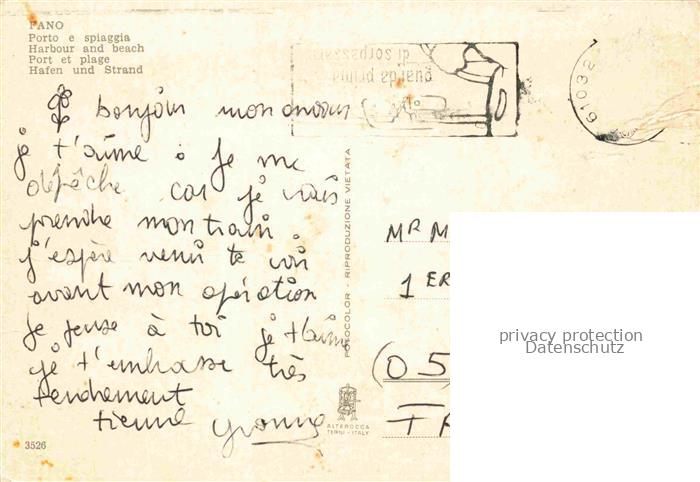 FANO
Porto e spiaggia
Harbour and beach
Port et plage
Hafen und Strand
guarda prima
di sorpassare
61032
bonjour mon amour
je t'aime. Je me
dépêche car je vais
prendre mon train.
j'espère venir te voir
avant mon opération
Je pense à toi je t'aime
je t'embrasse très
tendrement
tienne Yvonne
FOTOCOLOR - RIPRODUZIONE VIETATA
MR M
1 ER
(05
ALTEROCCA
TERNI - ITALY
3526
privacy protection
Datenschutz